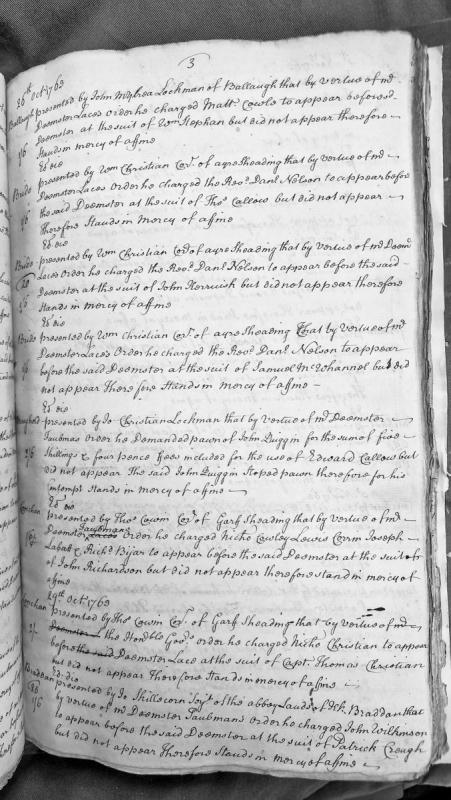 3
26th Oct 1763
Ballaugh presented by John Mylrea Lockman of Ballaugh that by vertue of mr
Deemster Laces order he charged Mattw Cowle to appear before sd
Deemster at the suit of Wm Stephan but did not appear therefore
1/6 Stands in mercy of a ffine
Ed die
Bride presented by Wm Christian Corr of ayre Sheading that by vertue of mr
Deemster Laces Order he charged the Revd Danl Nelson to appear before
the said Deemster at the suit of Thos Callow but did not appear
1/6 therefore Stands in mercy of a ffine
Ed die
Bride presented by Wm Christian Corr of ayre Sheading that by vertue of mr Deemr
Laces Order he charged the Revd Danl Nelson to appear before the said
Deemster at the suit of John Kerruish but did not appear therefore
1/6 Stands in mercy of a ffine
Ed die
Bride presented by Wm Christian Corr of ayre Sheading that by vertue of mr
Deemster Laces Order he charged the Revd Danl Nelson to appear
before the said Deemster at the suit of Samuel McWhannel but did
not appear therefore Stands in mercy of a ffine
Ed die
presented by Jo Christian Lockman that by vertue of mr Deemster
Taubmas order he Demanded pawn of John Quiggin for the sum of five
Shillings & four pence ffees included for the use of Edward Callow but
did not appear The said John Quiggin Stoped pawn therefore for his
Contempt Stands in mercy of a ffine
Ed die
Conchan presented by Thos Cowin Corr of Garff Sheading that by vertue of mr
Taubmans
Deemster Laces Order he charged Nicho Cowley Lewis Corrin Joseph
Labat & Richd Bijar to appear before the said Deemster at the suit of
of John Richardson but did not appear therefore stand in mercy of
a ffine
29th Octr 1763
Conchan presented by Tho Cowin Corr of Garff Sheading that by vertue of mr
Deemster the Honble Govrs order he charged Nicho Christian to appear
2/- before the said Deemster Lace at the suit of Capt Thomas Christian
but did not appear therefore Stands in mercy of a ffine
Braddan Ed die
presented by Jo Skillicorn Serjt of the abbey Lands of Kk Braddan that
1/6 by vertue of mr Deemster Taubmans order he charged John Wilkinson
to appear before the said Deemster at the suit of Patrick Creugh
but did not appear therefore Stands in mercy of a ffine